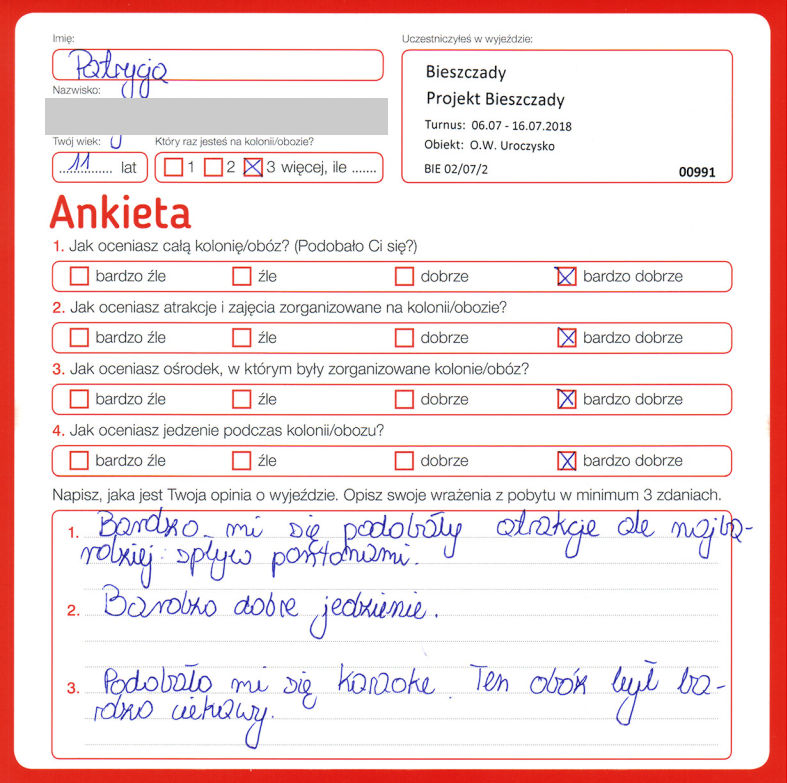 Imię:
Patrycja
Nazwisko:
Twój wiek:
11 lat
Który raz jesteś na kolonii/obozie?
1 2 3 więcej, ile .......
Uczestniczyłeś w wyjeździe:
Bieszczady
Projekt Bieszczady
Turnus: 06.07 - 16.07.2018
Obiekt: O.W. Uroczysko
BIE 02/07/2 00991
Ankieta
1. Jak oceniasz całą kolonię/obóz? (Podobało Ci się?)
bardzo źle źle dobrze bardzo dobrze
2. Jak oceniasz atrakcje i zajęcia zorganizowane na kolonii/obozie?
bardzo źle źle dobrze bardzo dobrze
3. Jak oceniasz ośrodek, w którym były zorganizowane kolonie/obóz?
bardzo źle źle dobrze bardzo dobrze
4. Jak oceniasz jedzenie podczas kolonii/obozu?
bardzo źle źle dobrze bardzo dobrze
Napisz, jaka jest Twoja opinia o wyjeździe. Opisz swoje wrażenia z pobytu w minimum 3 zdaniach.
1. Bardzo mi się podobały atrakcje ale najba-
rdziej spływ pontonami.
2. Bardzo dobre jedzienie.
3. Podobało mi się karaoke. Ten obóz był ba-
rdzo ciekawy.